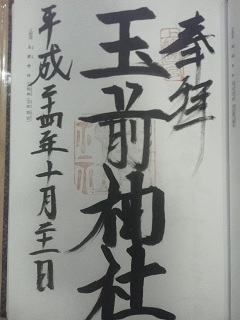 奉拝
玉前神社
平成二十四年十月二十一日